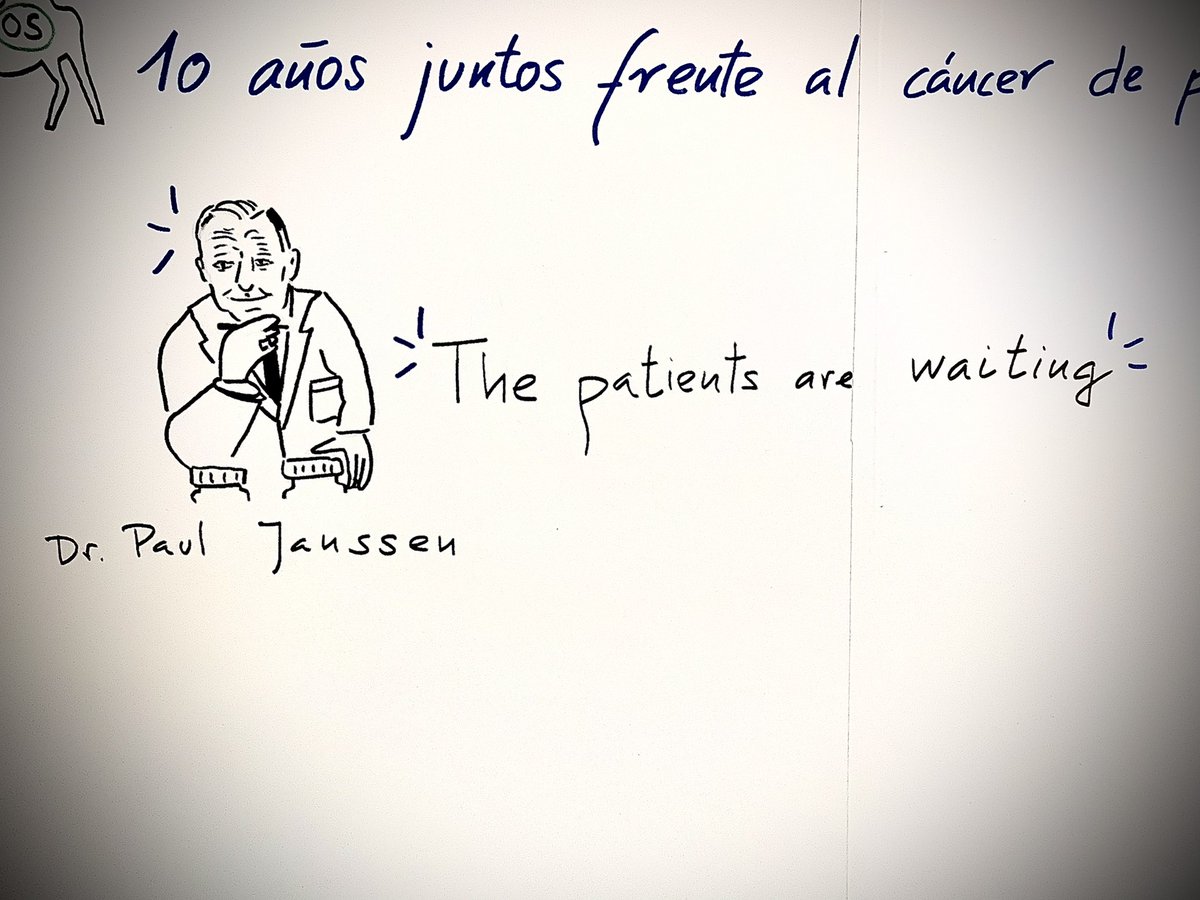 OS
10 años juntos frente al cáncer de
The patients are waiting
Dr. Paul Janssen